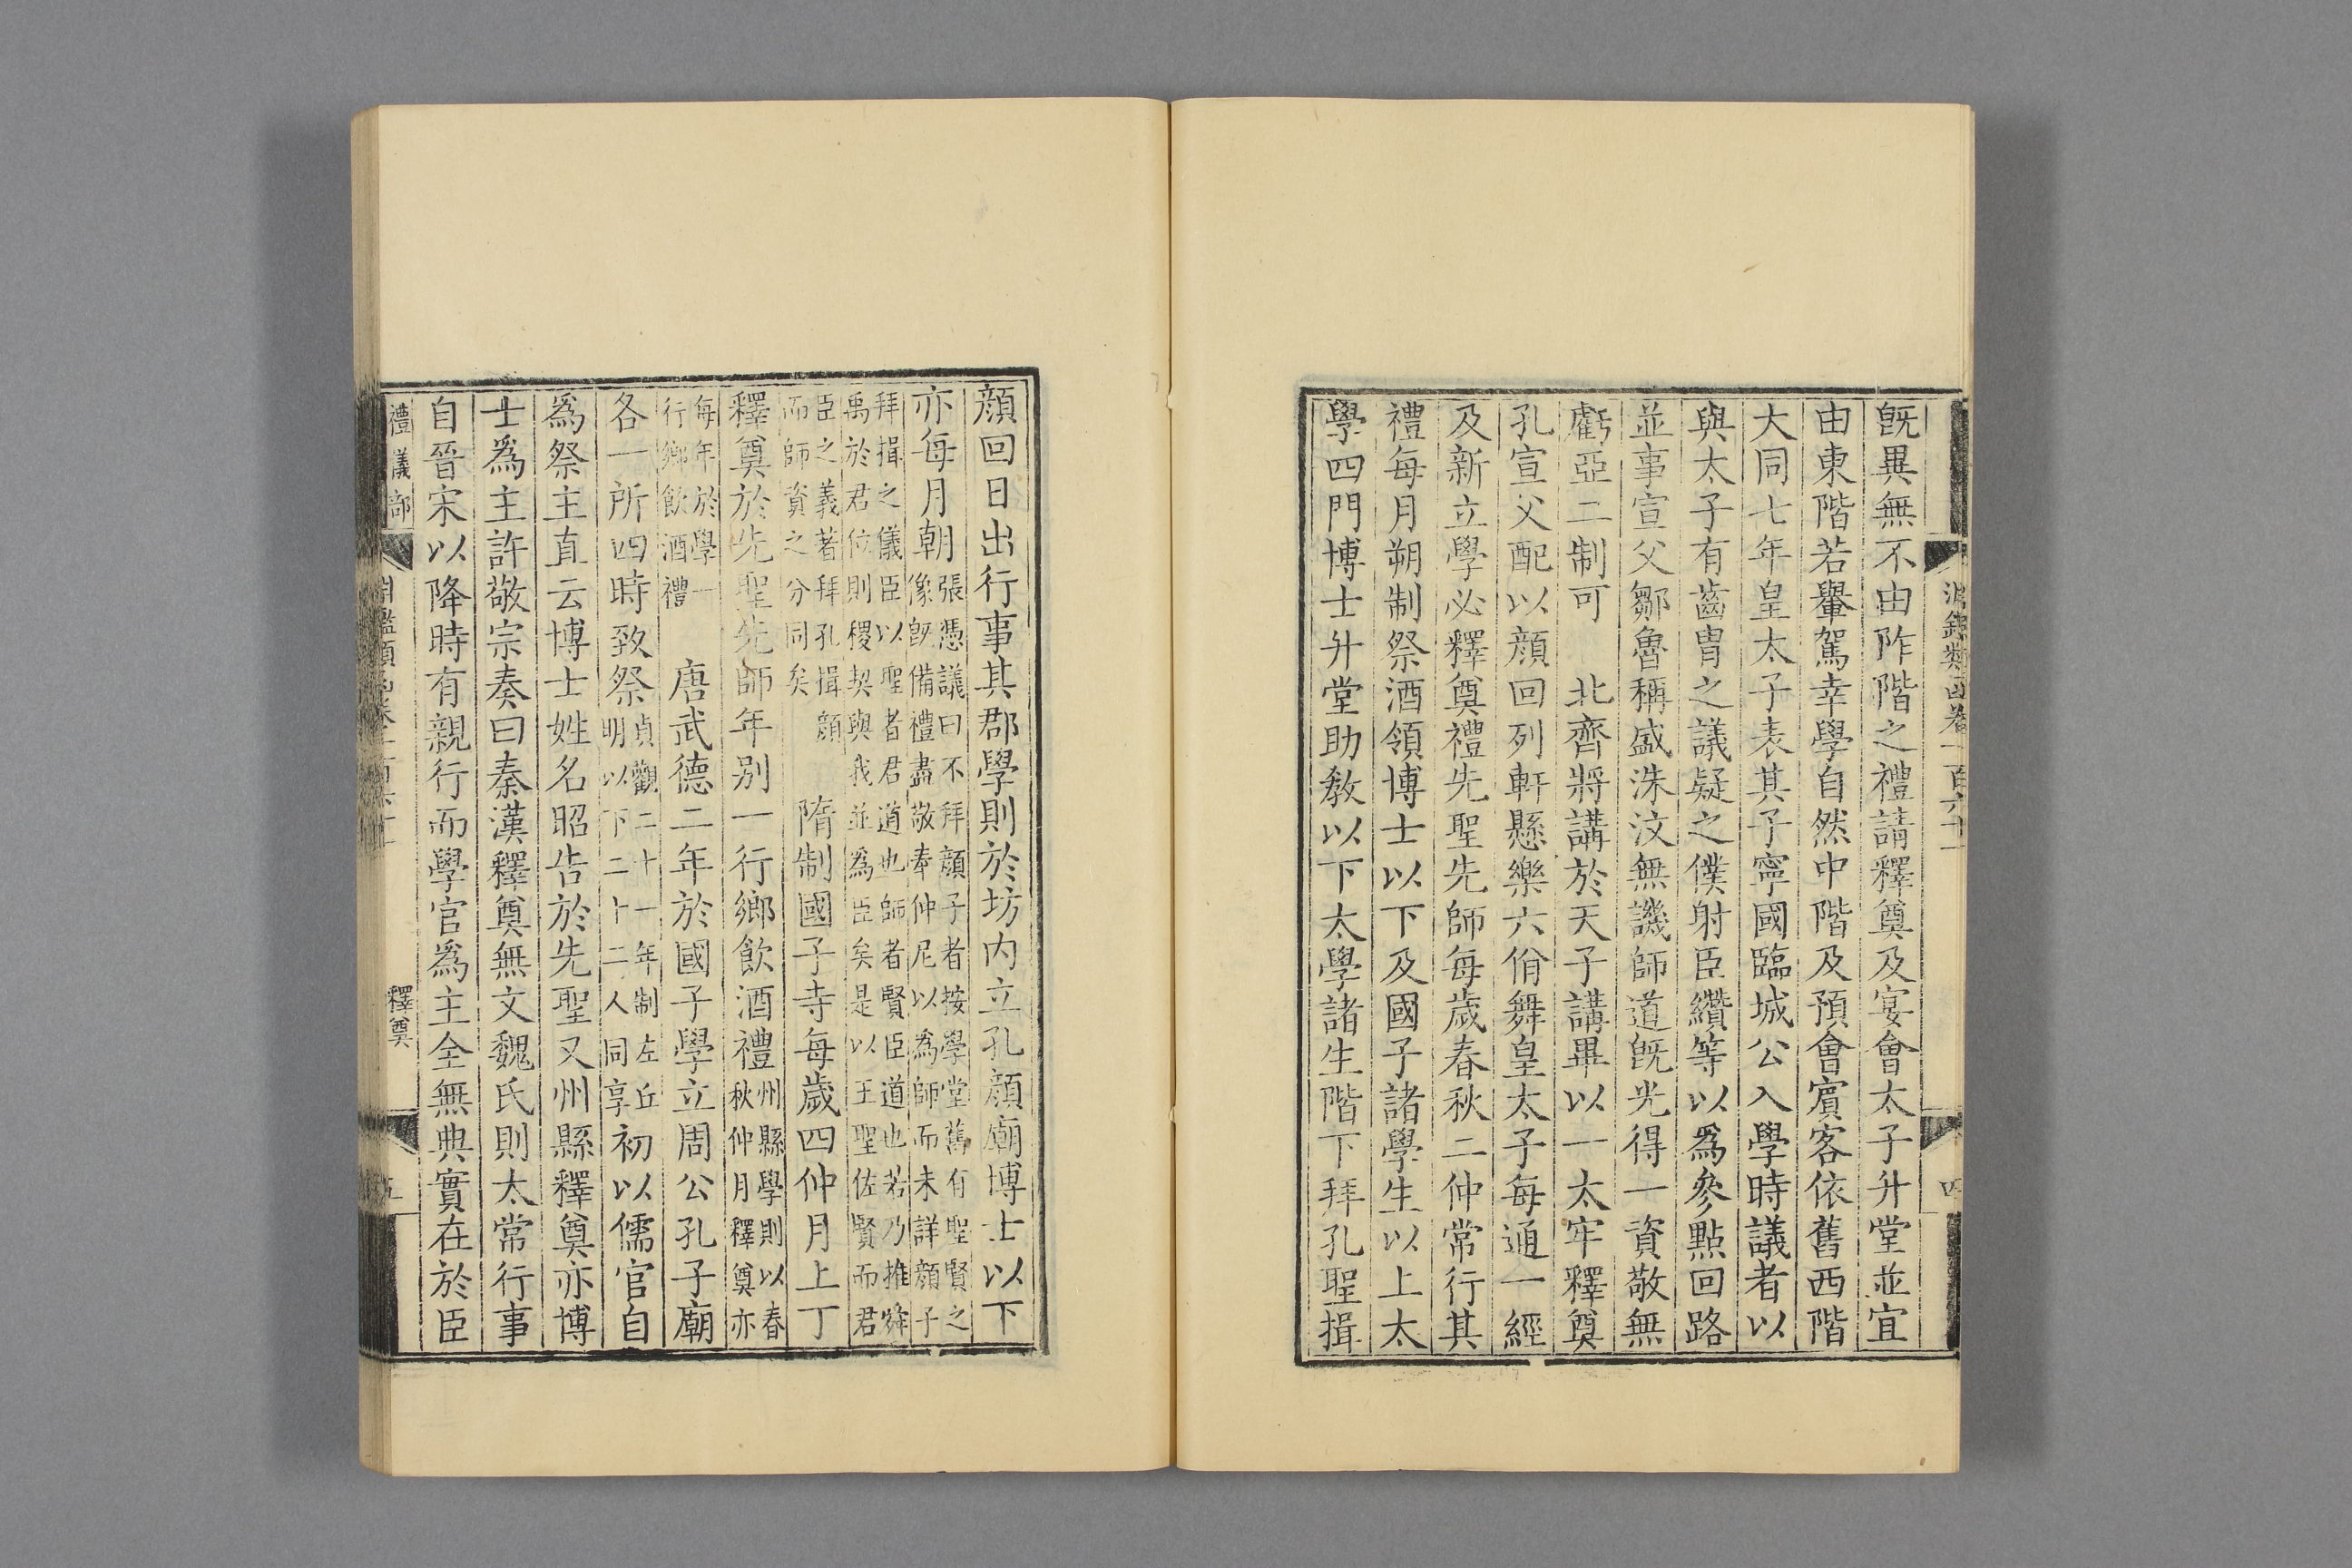 旣異無不由阼階之禮請釋奠及宴會太子升堂並宜
由東階若轝駕幸學自然中階及預會賓客依舊西階
大同七年皇太子表其子寧國臨城公入學時議者以
與太子有齒冑之議疑之僕射臣纘等以爲參點回路
並事宣父鄒魯稱盛洙汶無譏師道旣光得一資敬無
虧亞二制可　北齊將講於天子講畢以一太牢釋奠
孔宣父配以顔回列軒懸樂六佾舞皇太子每通一經
及新立學必釋奠禮先聖先師每歲春秋二仲常行其
禮每月朔制祭酒領博士以下及國子諸學生以上太
學四門博士升堂助敎以下太學諸生階下拜孔聖揖
顔回日出行事其郡學則於坊内立孔顔廟博士以下
亦每月朝
張憑議曰不拜顔子者按學堂舊有聖賢之
像旣備禮盡敬奉仲尼以爲師而未詳顔子
拜揖之儀臣以聖者君道也師者賢臣道也若乃推舜
禹於君位則稷契與我並爲臣矣是以王聖佐賢而君
臣之義著拜孔揖顔
而師資之分同矣
隋制國子寺每歲四仲月上丁
釋奠於先聖先師年别一行鄉飲酒禮
州縣學則以春
秋仲月釋奠亦
每年於學一
行鄉飲酒禮
唐武德二年於國子學立周公孔子廟
各一所四時致祭
貞觀二十一年制左丘
明以下二十二人同享
初以儒官自
爲祭主直云博士姓名昭告於先聖又州縣釋奠亦博
士爲主許敬宗奏曰秦漢釋奠無文魏氏則太常行事
自晉宋以降時有親行而學官爲主全無典實在於臣
禮儀部
釋奠
五